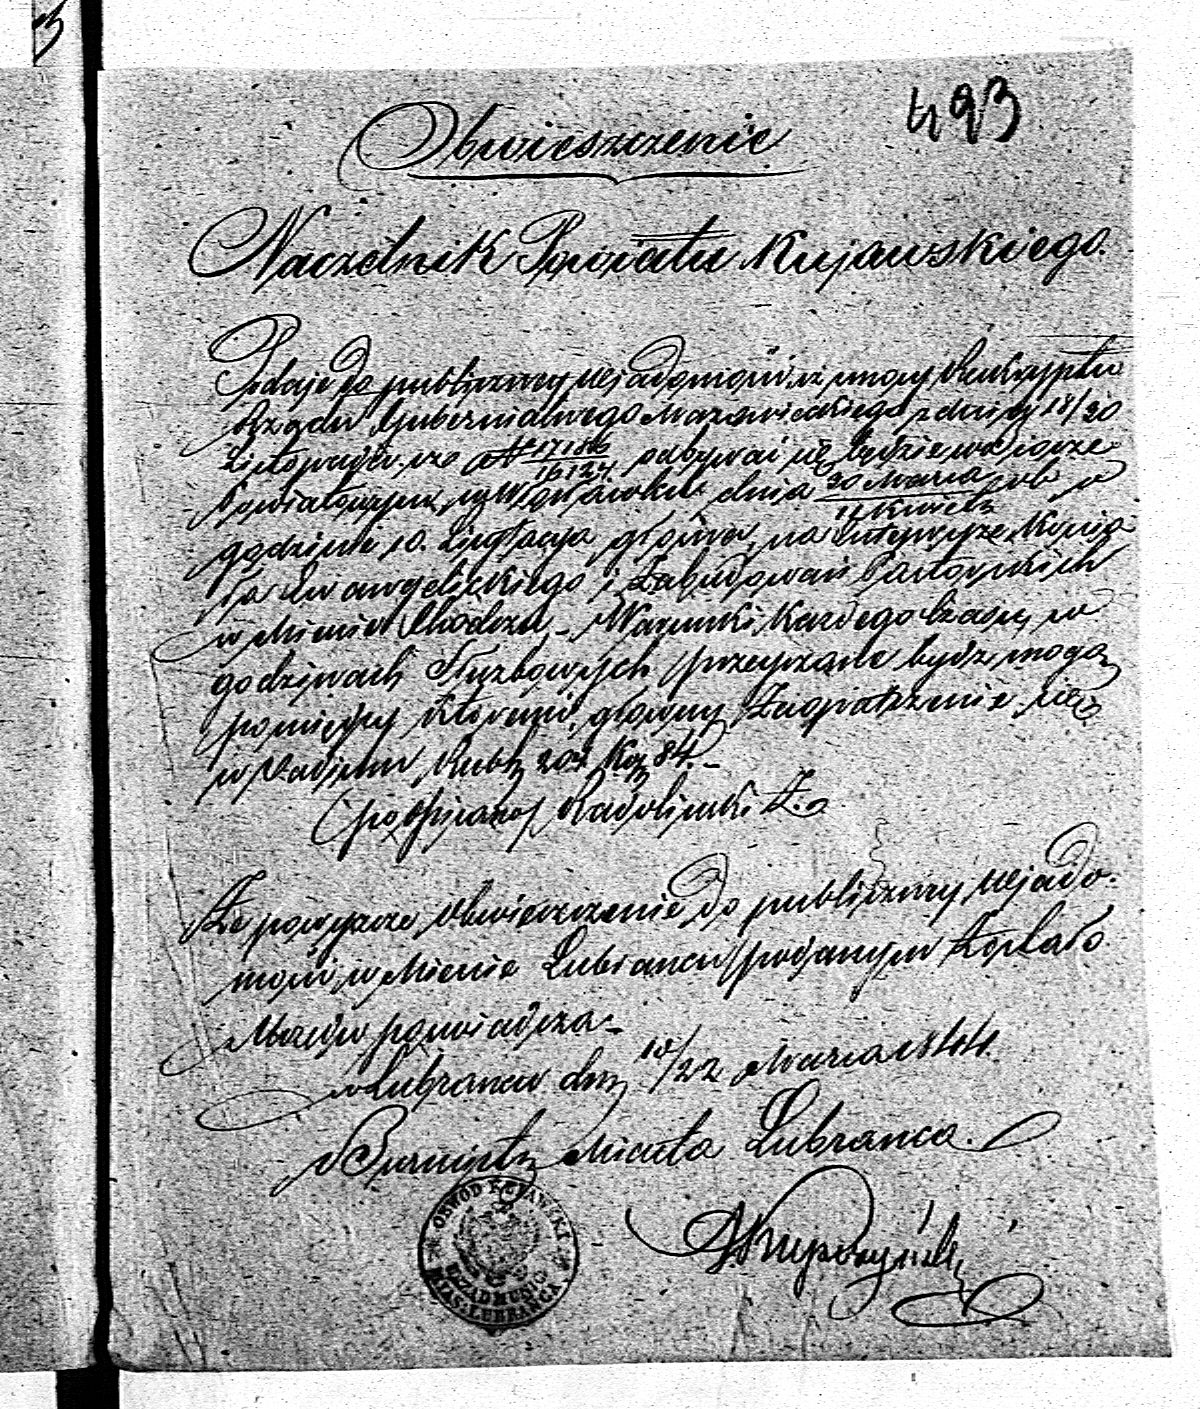 493
Obwieszczenie
Naczelnik Powiatu Kujawskiego.
Podaje do publiczney wiadomości, iż z mocy Reskryptu
Rządu Gubernialnego Mazowieckiego z daty 18/30
Listopada r. z. N 17186/16124. odbywać się będzie w biórze
Powiatowym w Włocławku dnia 30 Marca/11 Kwiet. r b o
godzinie 10. Licytacja główna, na Kościo-
ła Ewangelickiego i Zabudowań Pastorskich
w Mieście Chodczu,- Warunki każdego czasu, w
godzinach Służbowych przeyrzane bydź mogą
pomiędzy któremi główny Zaopatrzenie się
w Vadium Rubli 202 Kop 84.-
(podpisano) Radolinski Z.
Że powyższe obwieszczenie do publiczney wiado-
mości w Mieście Lubrancu podanym Zostało
poswiadcza.-
w Lubrancu dnia 10/22 Marca 1844.
Burmistrz Miasta Lubranca.
OBWÓD KUJAWSKI
URZĄD MUNIC.
MIAS: LUBRANCA